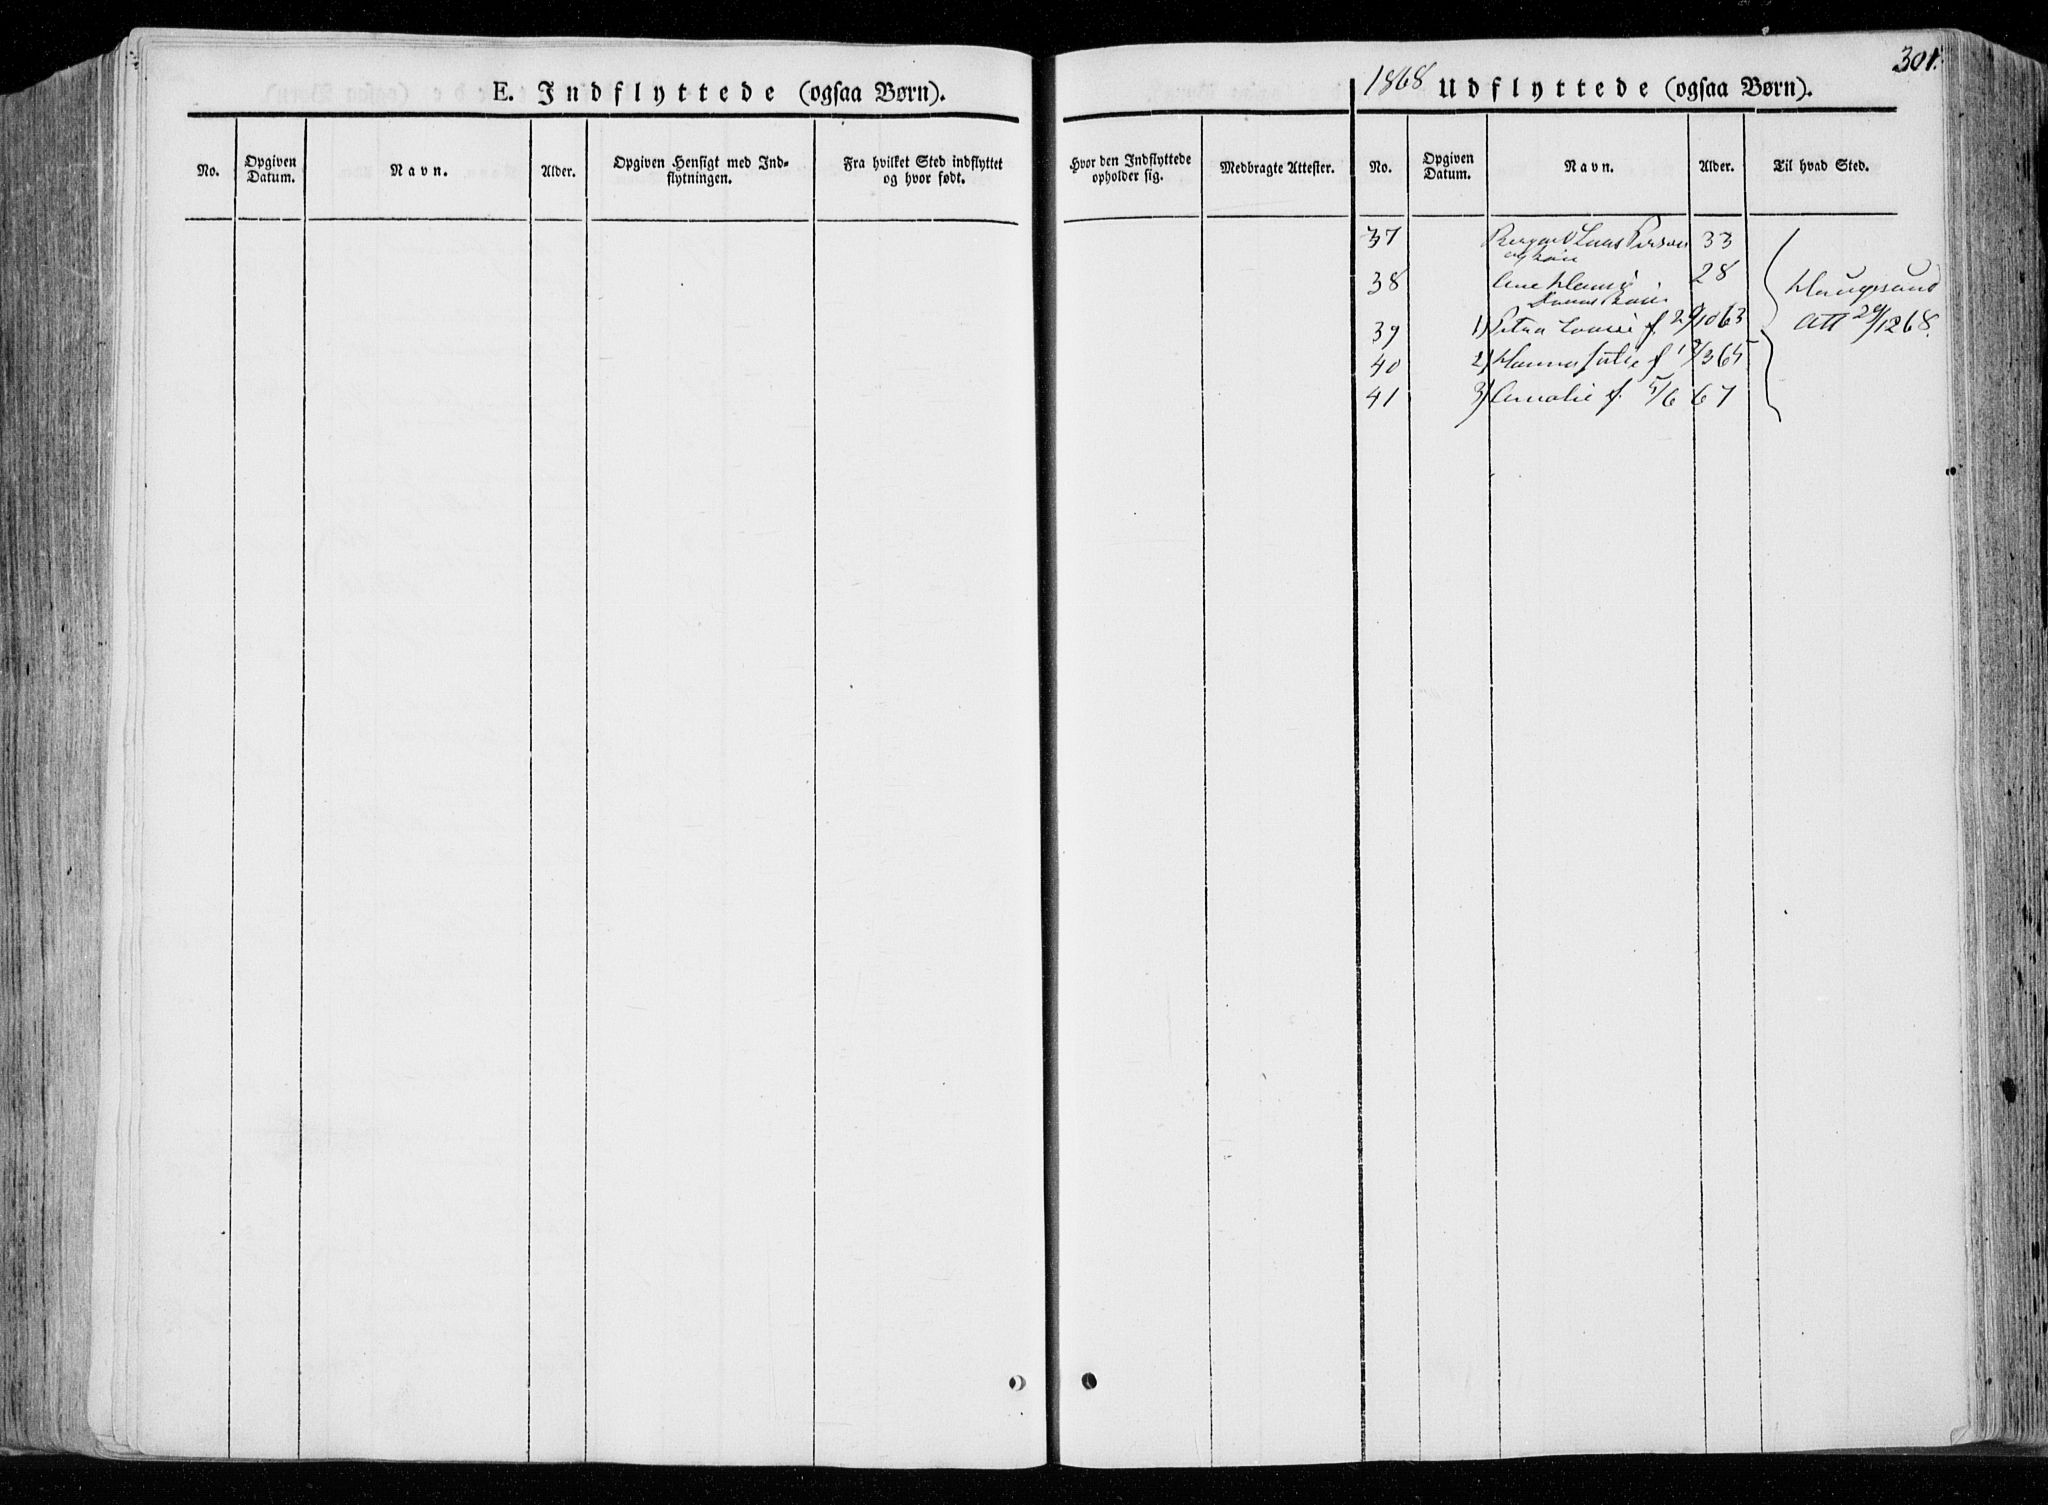 301.
E. Indflyttede (ogsaa Børn).
1868 Udflyttede (ogsaa Børn).
No.
Opgiven Datum.
Navn.
Alder.
Opgiven Hensigt med Ind-
flytningen.
Fra hvilket Sted indflyttet
og hvor født.
Hvor den Indflyttede
opholder sig.
Medbragte Attester.
No.
Opgiven
Datum.
Navn.
Alder.
Til hvad Sted.
37 Lars 33
og
38 28
Haugesund
39 1) Petra f. 29/10 63
Att 29/12 68.
40 2) Hanna Julie f 3 65
41 3) Amalie f. 5/6 67